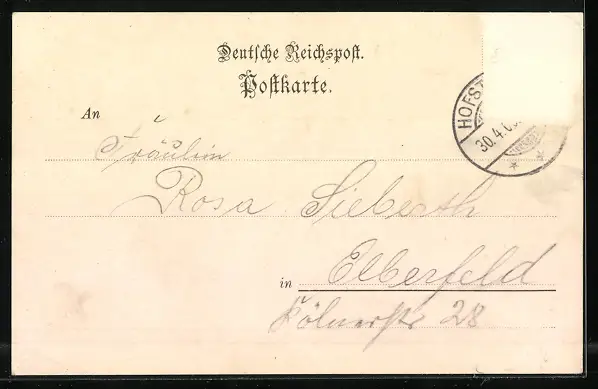 Deutsche Reichspost.
Postkarte.
An
Fräulein
Rosa Sieberth
in Elberfeld
Kölnerstr 28
HOFST
30.4.0